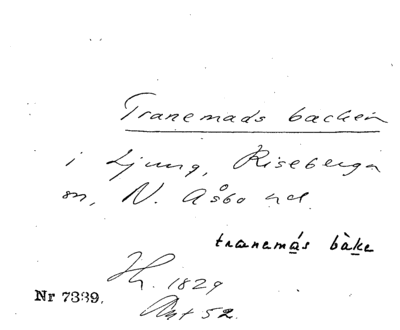 Tranemads backen
i Ljung, Riseberga
sn, N. Åsbo hd.
tranemás bàke
1829
Nr 7339.
52.